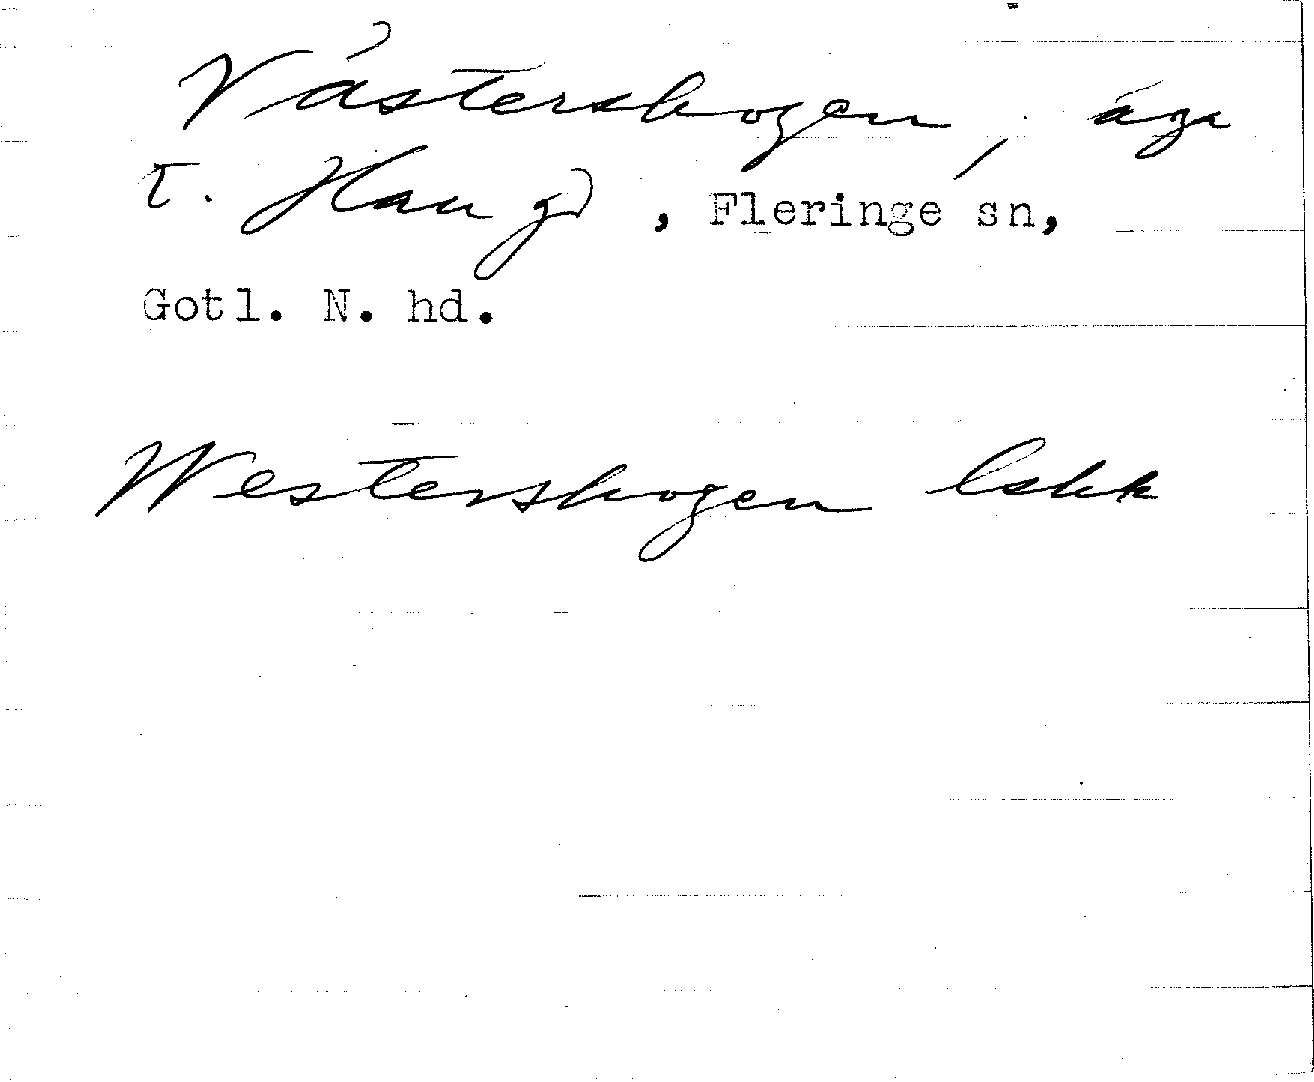 Västerskogen, äga
t. Hau gd, Fleringe sn,
Gotl. N. hd.
Westerskogen lskk